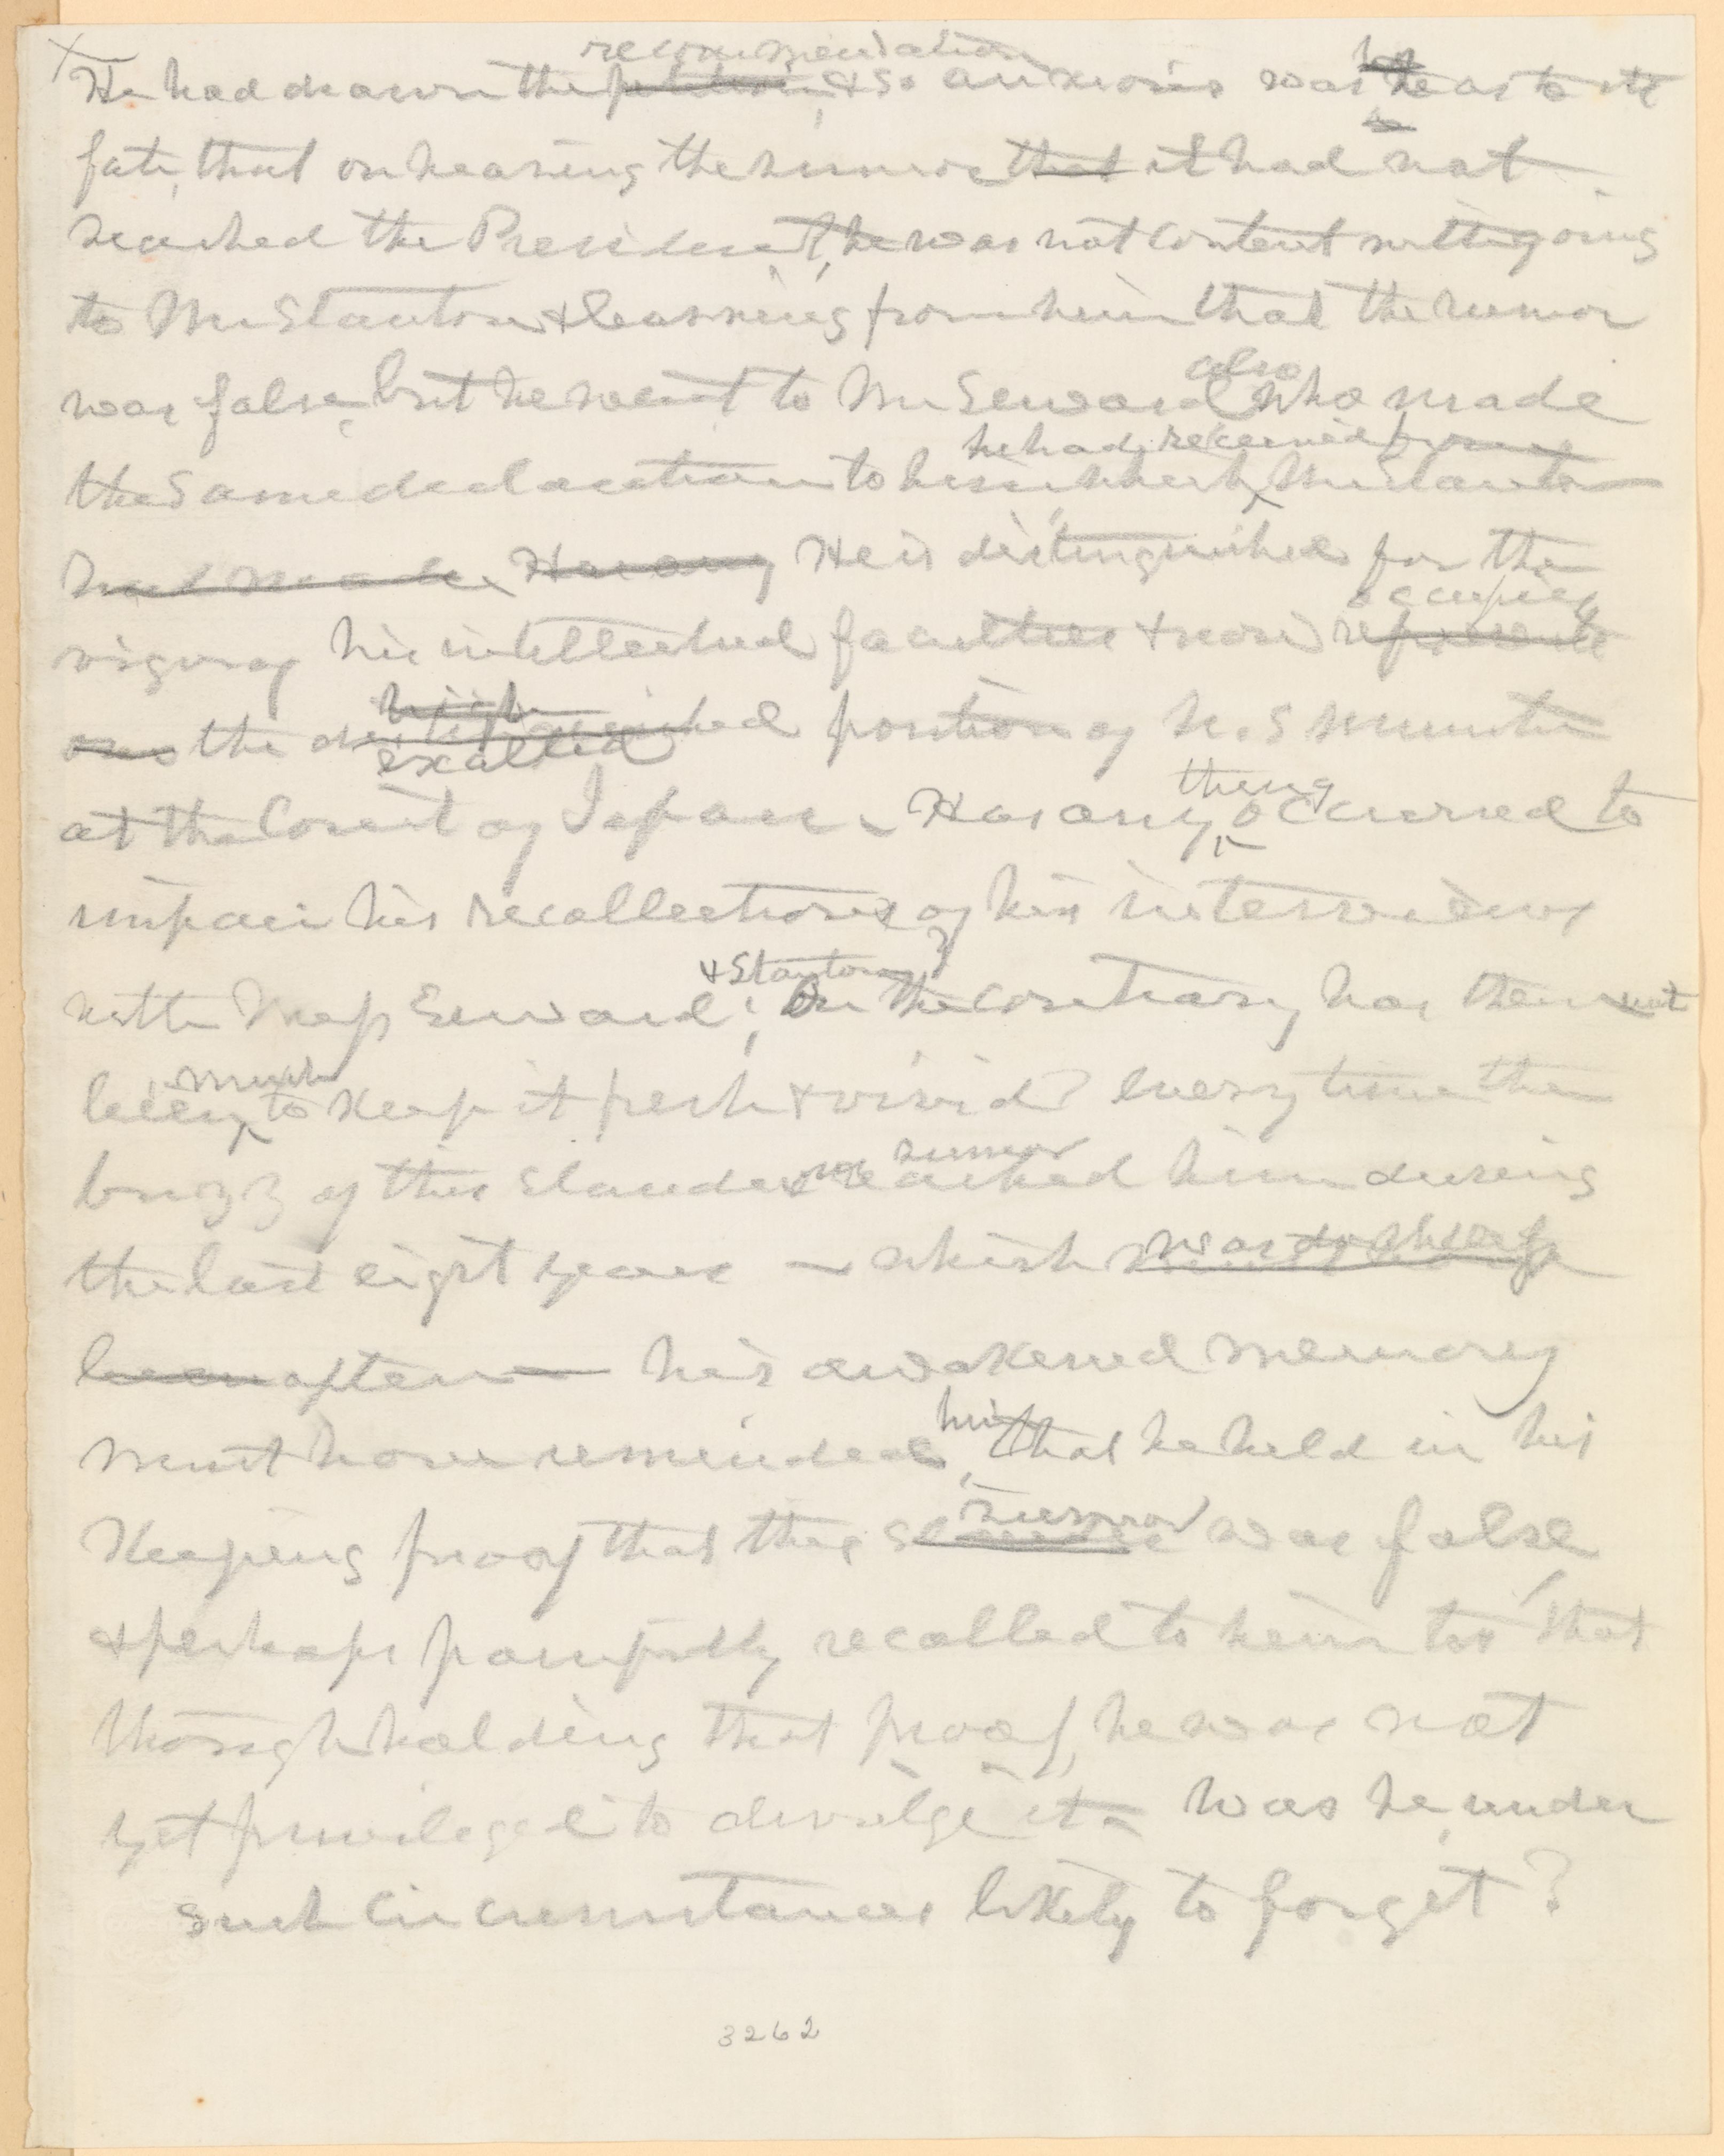 X
recommendation
He had drawn the petition, & so anxious was he as to its
fate, that on hearing the rumor that it had not
reached the President, he was not content with going
to Mr Stanton & learning from him that the rumor
was false, but he went to Mr Seward also who made
he had received from
the same declaration to him, which Mr Stanton
had made. Has any He is distinguished for the
occupies
vigor of his intellectual faculties & now represents
high
one the distinguished position of U.S Minister
exalted
at the Court of Japan. Has any thing occurred to
impair his recollections of his interviews
& Stanton?
with Mess Seward; On the contrary has there not
much
been to keep it fresh & vivid? every time the
rumor
buzz of this slander reached him during
the last eight years — which
been often — his awakened memory
must have reminded him, that he held in his
rumor
Keeping proof that this slander was false,
& perhaps painfully recalled to him too that
though holding that proof, he was not
yet privileged to divulge it — Was he, under
such circumstances likely to forget?
3262